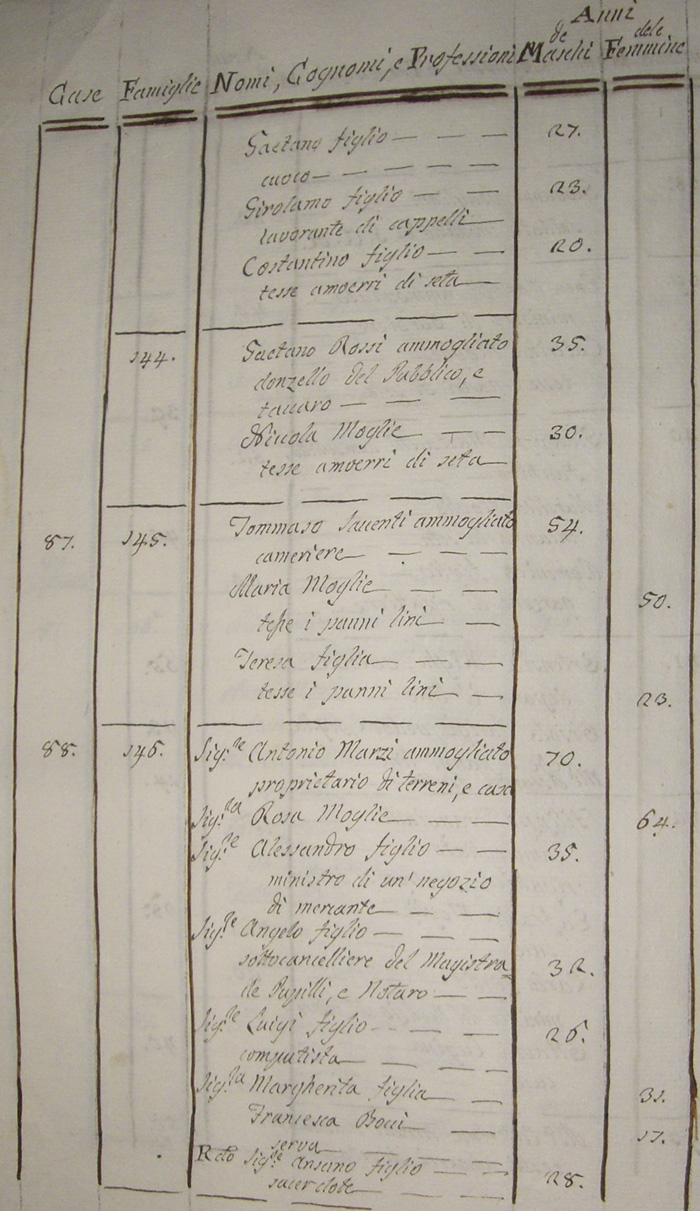 Anni
Case Famiglie Nomi, Cognomi, e Professioni de Maschi dele Femmine
Gaetano figlio — — — 27.
cuoco — — — —
Girolamo figlio — — 23.
lavorante di cappelli —
Costantino figlio — — 20.
tesse amoerri di seta —
144. Gaetano Rossi ammogliato 35.
donzello del Pubblico, e
tavvaro — — —
Niccola Moglie — — 30.
tesse amoerri di seta —
87. 145. Tommaso Saventi ammogliato 54.
cameriere — — —
Maria Moglie — —
tesse i panni lini — — 50.
Teresa figlia — —
tesse i panni lini — 23.
88. 146. Sig.re Antonio Marzi ammogliato 70.
proprietario di terreni, e case
Sig.ra Rosa Moglie — — 64.
Sig.re Alessandro figlio — — 35.
ministro di un' negozio
di mercante — — —
Sig.re Angelo figlio — —
sottocancelliere del Magistra= 32.
de Pupilli, e Notaro — —
Sig.re Luigi figlio — — — 26.
computista — — —
Sig.ra Margherita figlia — 31.
Francesca — 17.
serva —
Rdo Sig.re Ansano figlio — —
sacerdote — — 28.